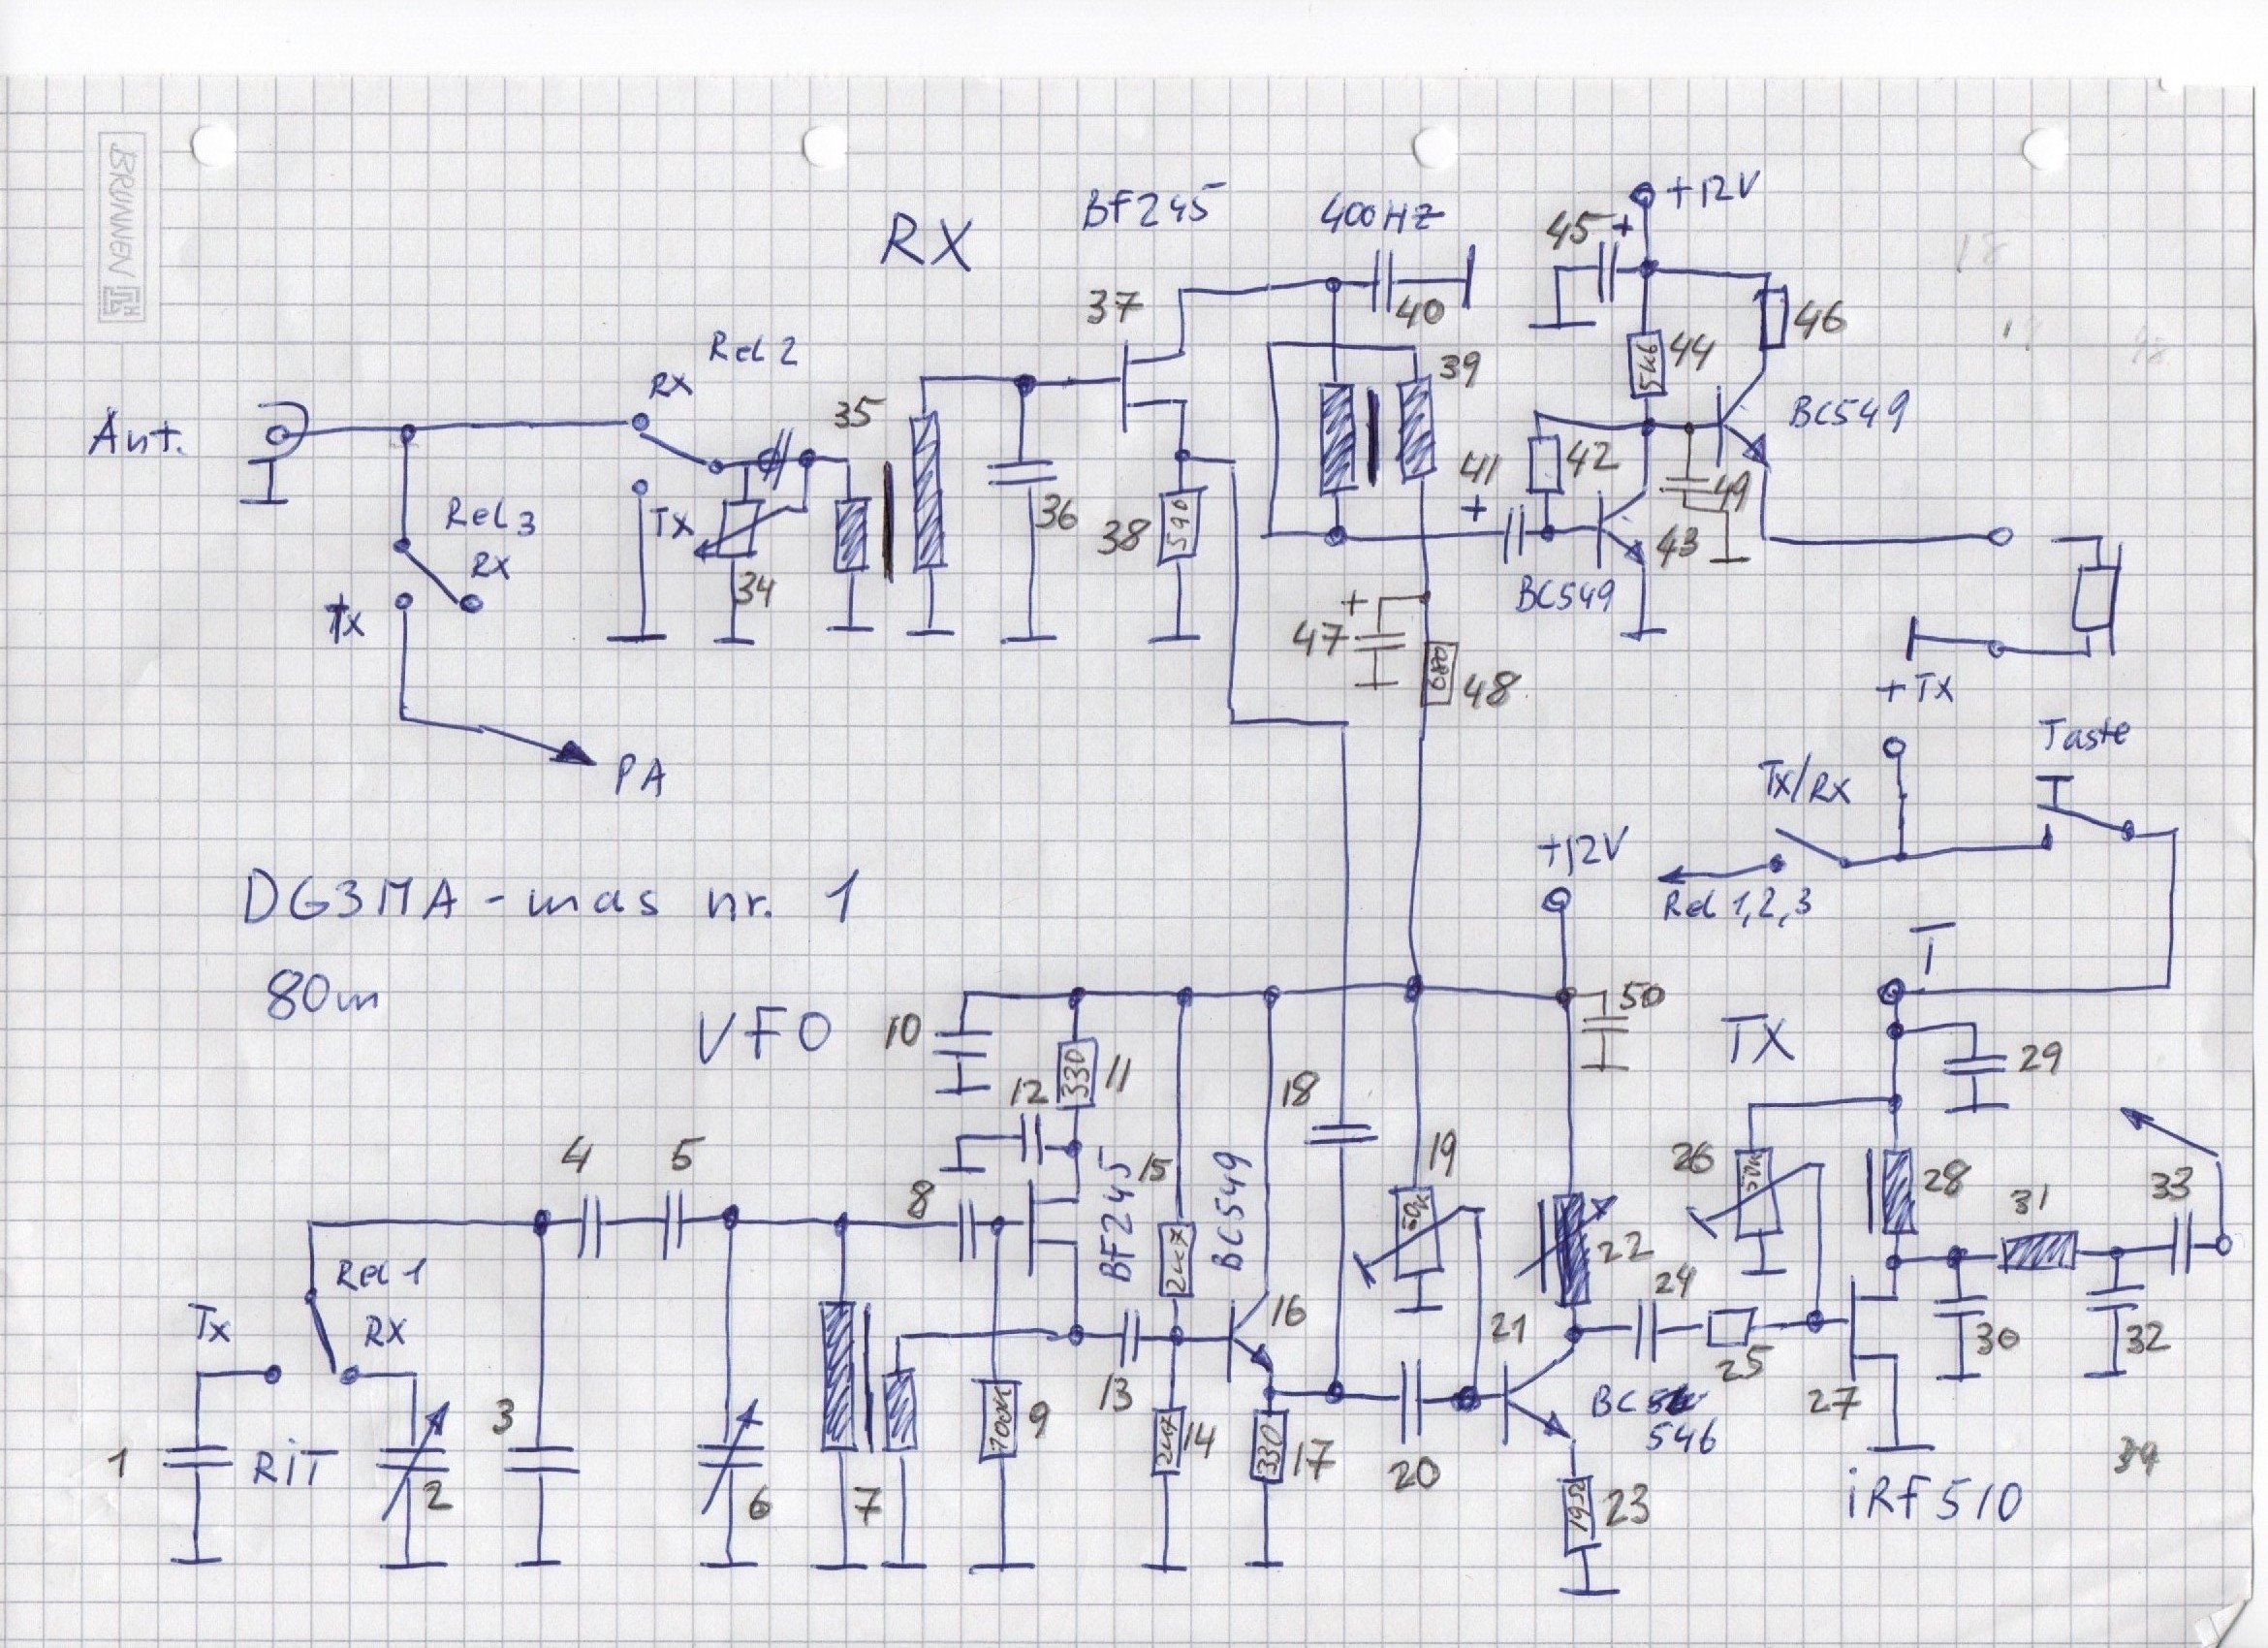 BRUNNEN
RX
BF245
400HZ
+12V
45
+
37
40
46
Rel 2
RX
39
44
5k6
35
BC549
Ant.
41
+
42
49
Rel 3
Tx
36
38
590
43
RX
34
BC549
Tx
+
47
680
48
+TX
PA
Taste
Tx/RX
+12V
Rel 1,2,3
DG3MA - mas nr. 1
80m
T
VFO
10
50
TX
12
330
11
29
18
4
5
8
BF245
15
BC549
19
50K
26
50K
28
31
33
2k7
22
Rel 1
Tx
RX
16
21
24
25
30
32
13
27
3
100K
9
2k7
14
330
17
BC
546
1
RiT
2
6
7
20
19Ω
23
iRF510
39
18